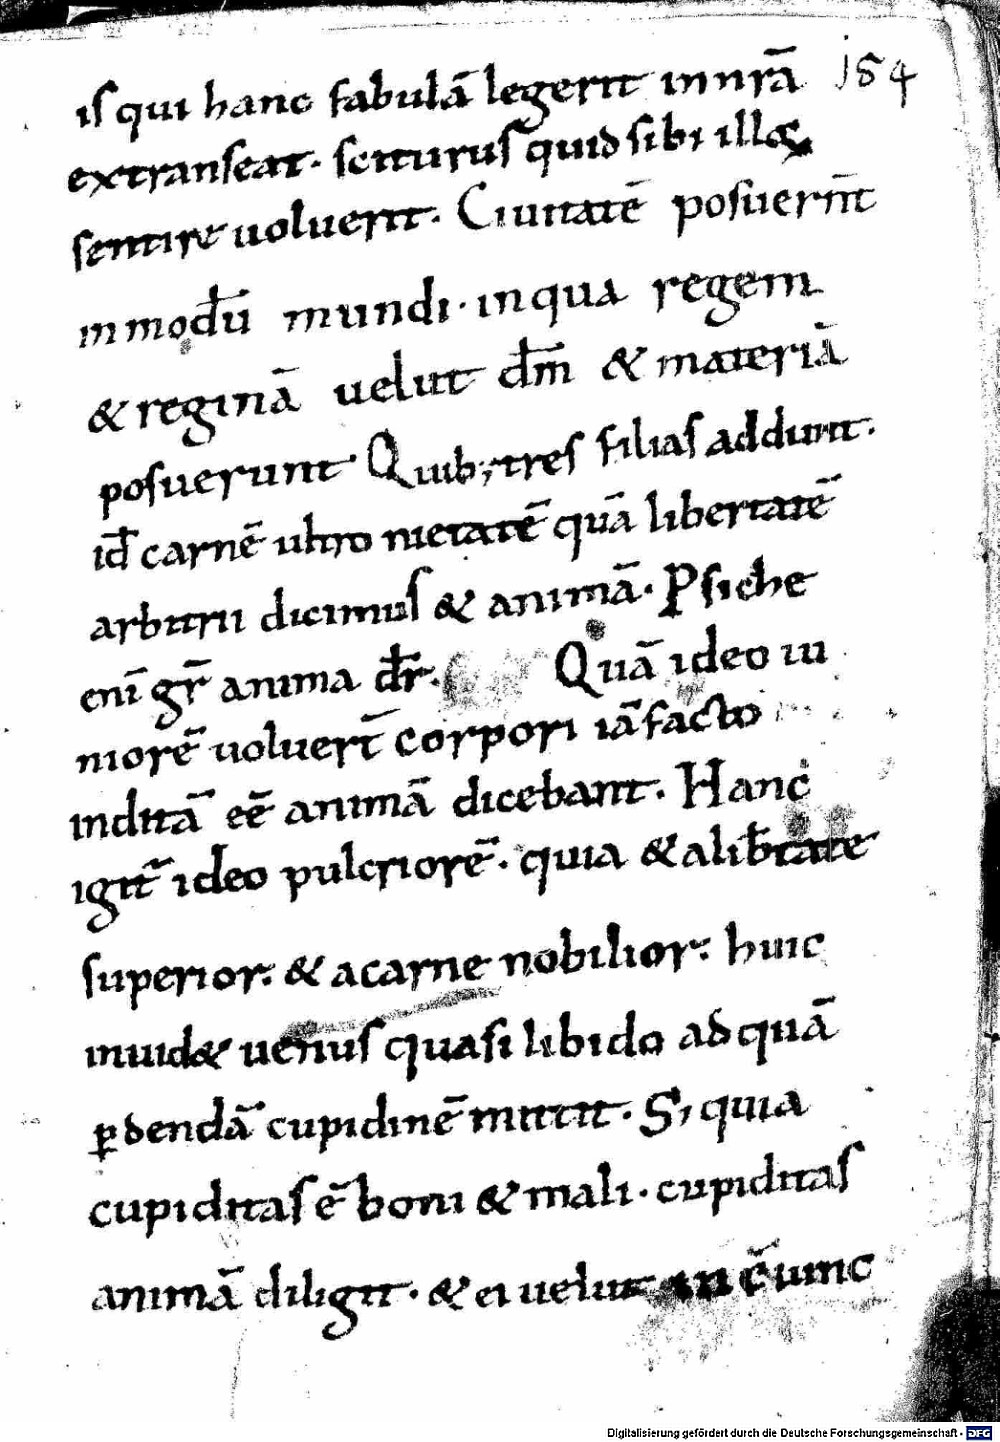 154
is qui hanc fabulā legerit in nr̄ā
extranseat. sciturus quid sibi ill
sentire uoluerit. Ciuitatē posuerīnt
in mod̄ū mundi. in qua regem
& reginā uelut dm̄ & materiā
posuerunt. Quib; tres filias addunt.
id̄ carnē ultronietatē quā libertatē
arbitrii dicimus & animā. Psiche
eni̅ gr̄ anima dr̄. Quā ideo iu
niorē uoluer̄t corpori iā facto
inditā eē animā dicebant. Hanc
igit̄ ideo pulcriorē. quia & a lib̄tate
superior. & a carne nobilior. huic
inuid& uenus quasi libido ad quā
ꝑdendā cupidinē mittit. S; quia
cupiditas ē boni & mali. cupiditas
animā diligit. & ei uelut in c̄iunc
Digitalisierung gefördert durch die Deutsche Forschungsgemeinschaft - DFG